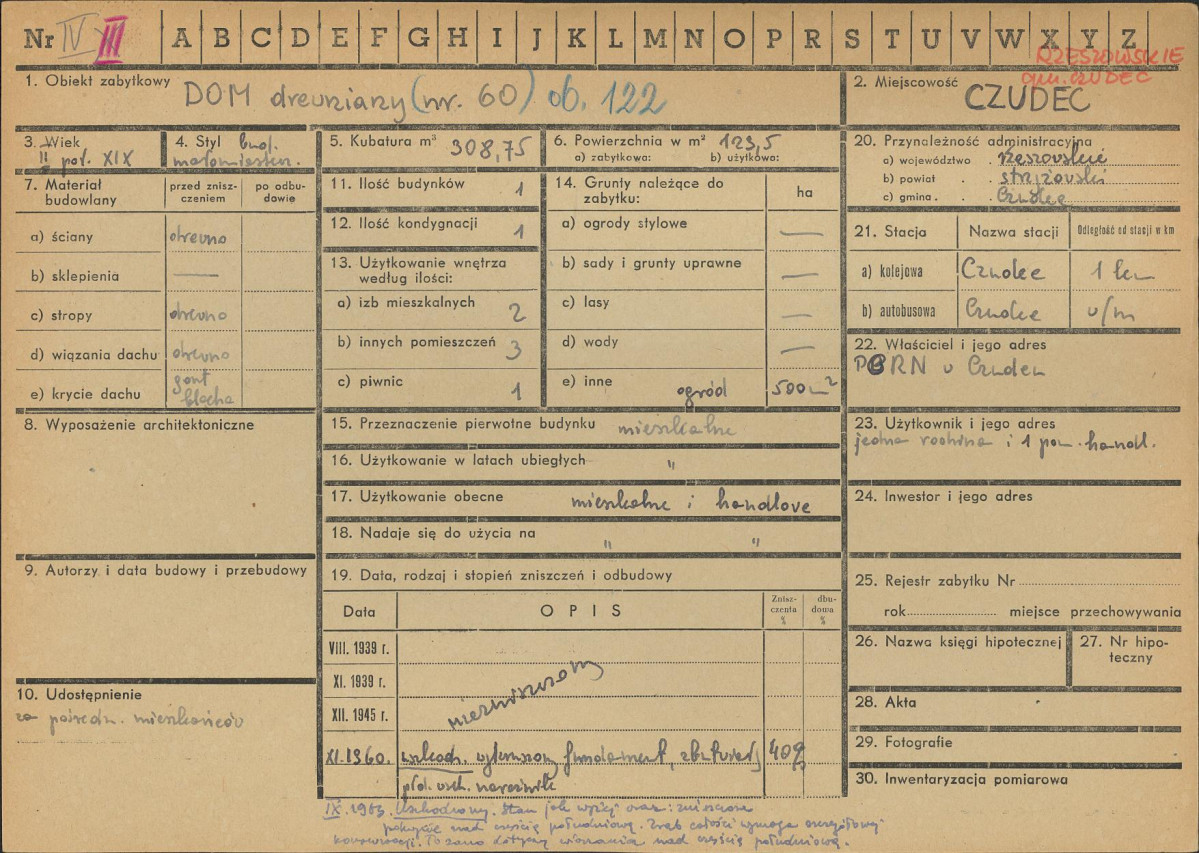 Nr IV III A B C D E F G H I J K L M N O P R S T U V W X Y Z
RZESZOWSKIE
gm. CZUDEC
1. Obiekt zabytkowy DOM drewniany (nr. 60) ob. 122
2. Miejscowość CZUDEC
3. Wiek II poł. XIX
4. Styl bud. małomiastecz.
5. Kubatura m³ 308,75
6. Powierzchnia w m² 123,5
a) zabytkowa: b) użytkowa:
7. Materiał budowlany
przed zniszczeniem
po odbudowie
a) ściany drewno
b) sklepienia —
c) stropy drewno
d) wiązania dachu drewno
e) krycie dachu gont blacha
8. Wyposażenie architektoniczne
9. Autorzy i data budowy i przebudowy
10. Udostępnienie
za pośredn. mieszkańców
11. Ilość budynków 1
12. Ilość kondygnacji 1
13. Użytkowanie wnętrza według ilości:
a) izb mieszkalnych 2
b) innych pomieszczeń 3
c) piwnic 1
14. Grunty należące do zabytku: ha
a) ogrody stylowe —
b) sady i grunty uprawne —
c) lasy —
d) wody —
e) inne ogród 500 m²
15. Przeznaczenie pierwotne budynku mieszkalne
16. Użytkowanie w latach ubiegłych "
17. Użytkowanie obecne mieszkalne i handlowe
18. Nadaje się do użycia na " "
19. Data, rodzaj i stopień zniszczeń i odbudowy
Data OPIS Zniszczenia % dbudowa %
VIII. 1939 r.
XI. 1939 r.
XII. 1945 r.
niezniszczony
XI.1960. uszkodz. wykruszony fundament, zbutwiały 40%
płd. wsch. narożnik
IX. 1963. Uszkodzony. Stan jak wyżej oraz: zniszczone
pokrycie nad częścią południową. Zrąb całości wymaga
konserwacji. To samo dotyczy wiązania nad częścią południową.
20. Przynależność administracyjna
a) województwo rzeszowskie
b) powiat strzyżowski
c) gmina Czudec
21. Stacja Nazwa stacji Odległość od stacji w km
a) kolejowa Czudec 1 km
b) autobusowa Czudec w/m
22. Właściciel i jego adres
PGRN w Czudcu
23. Użytkownik i jego adres
jedna rodzina i 1 pom. handl.
24. Inwestor i jego adres
25. Rejestr zabytku Nr
rok miejsce przechowywania
26. Nazwa księgi hipotecznej
27. Nr hipoteczny
28. Akta
29. Fotografie
30. Inwentaryzacja pomiarowa